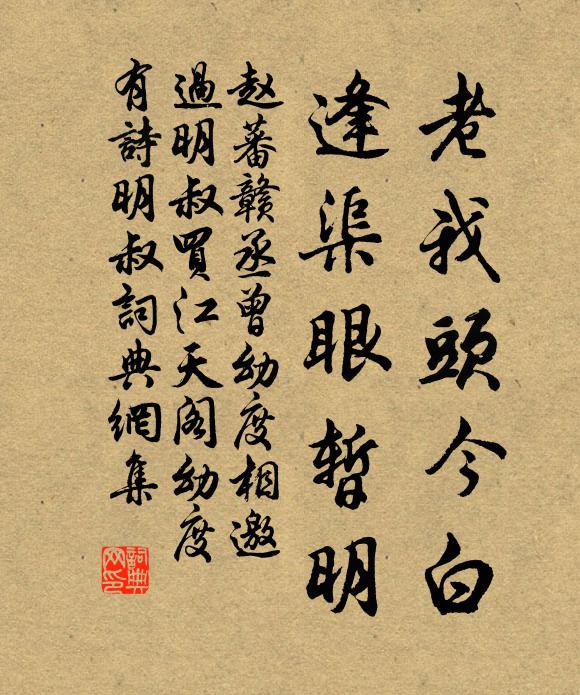 老我頭今白
逢渠眼暫明
赵蕃贛丞曾幼度相邀
過明叔買江天阁幼度
有詩明叔詞典網集
詞典網印